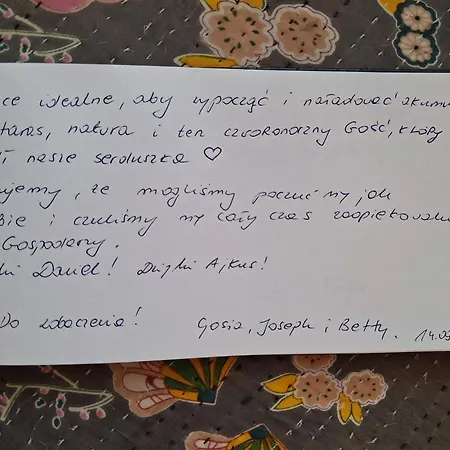 ce idealne, aby wypocząć i naładować akumu
taras, natura i ten czworonożny Gość, który
ł nasze serduszka ♡
ujemy, że mogliśmy poczuć my jak
bie i czuliśmy my cały czas zaopiekowani
Gospodarzy.
ki Daniel! Dzięki Ajkus!
Do zobaczenia!
Gosia, Joseph i Betty. 14.09